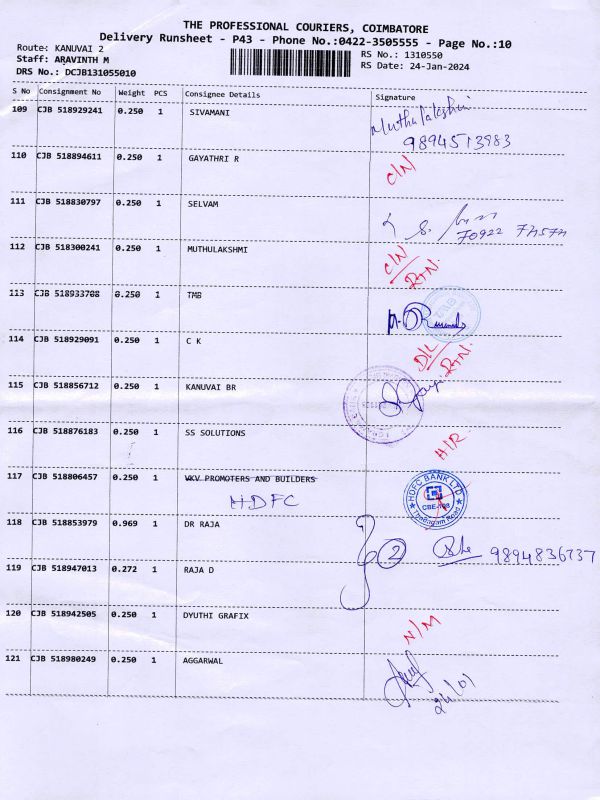 THE PROFESSIONAL COURIERS, COIMBATORE
Delivery Runsheet - P43 - Phone No.:0422-3505555 - Page No.:10
Route: KANUVAI 2
Staff: ARAVINTH M
DRS No.: DCJB131055010
RS No.: 1310550
RS Date: 24-Jan-2024
S No Consignment No Weight PCS Consignee Details Signature
109 CJB 518929241 0.250 1 SIVAMANI Muthulakshmi
9894513983
110 CJB 518894611 0.250 1 GAYATHRI R C/N
111 CJB 518830797 0.250 1 SELVAM K S.
70922
112 CJB 518300241 0.250 1 MUTHULAKSHMI C/N
RTN.
113 CJB 518933708 0.250 1 TMB
114 CJB 518929091 0.250 1 C K D/L
RTN.
115 CJB 518856712 0.250 1 KANUVAI BR
116 CJB 518876183 0.250 1 SS SOLUTIONS H/R
117 CJB 518806457 0.250 1 VKV PROMOTERS AND BUILDERS
HDFC
HDFC BANK LTD
CBE-
Thadagam Road
118 CJB 518853979 0.969 1 DR RAJA
2 9894836737
119 CJB 518947013 0.272 1 RAJA D
120 CJB 518942505 0.250 1 DYUTHI GRAFIX N/M
121 CJB 518980249 0.250 1 AGGARWAL
24/01